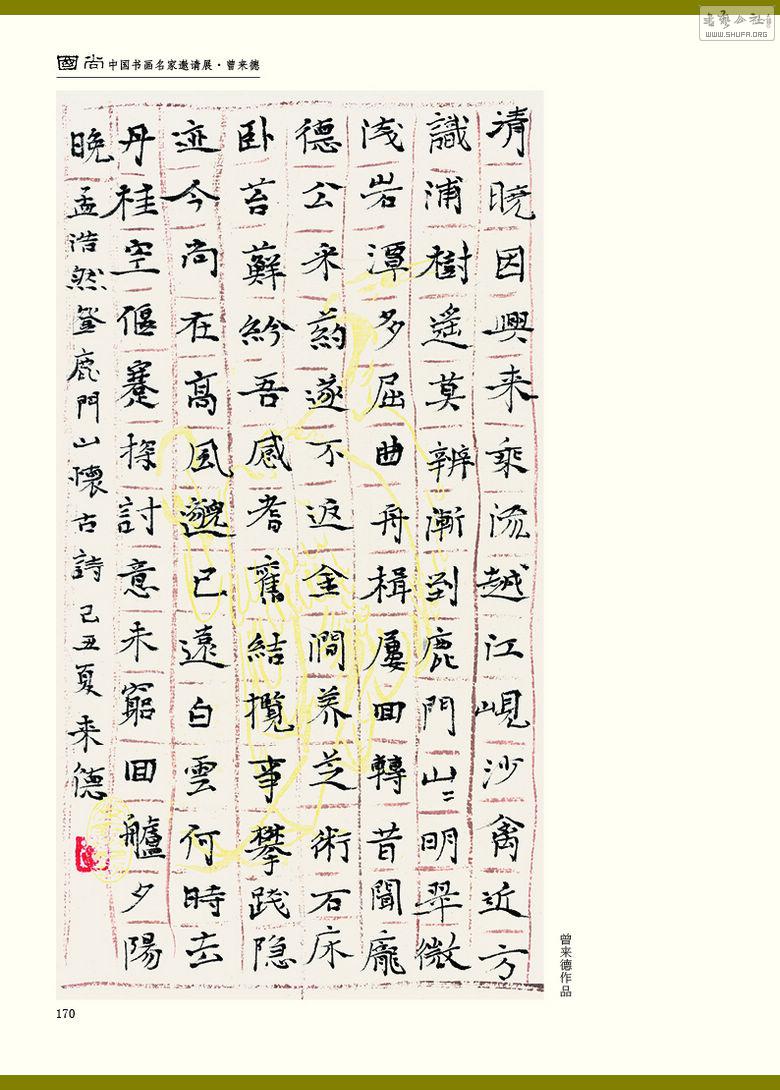 书艺公社
WWW.SHUFA.ORG
國尚 中国书画名家邀请展·曾来德
清曉因興来乘流越江峴沙禽近方
識浦樹遥莫辨漸到鹿門山〻明翠微
浅岩潭多屈曲舟楫屢回轉昔聞龐
德公采葯遂不返金澗养芝術石床
卧苔蘚紛吾感耆舊結攬事攀践隐
迹今尚在高風邈已遠白雲何時去
丹桂空偃蹇探討意未窮回艫夕陽
晚 孟浩然登鹿門山懷古詩 己丑夏 来德
曾来德作品
170